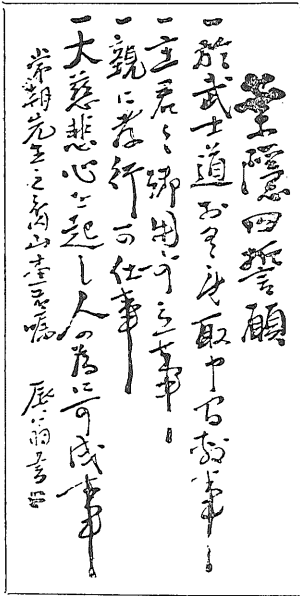 葉隠四誓願
一於武士道おくれ取申間敷事
一主君の御用可立事
一親に孝行可仕事
一大慈悲心を起し人の為に可成事
常朝先生之
翁書